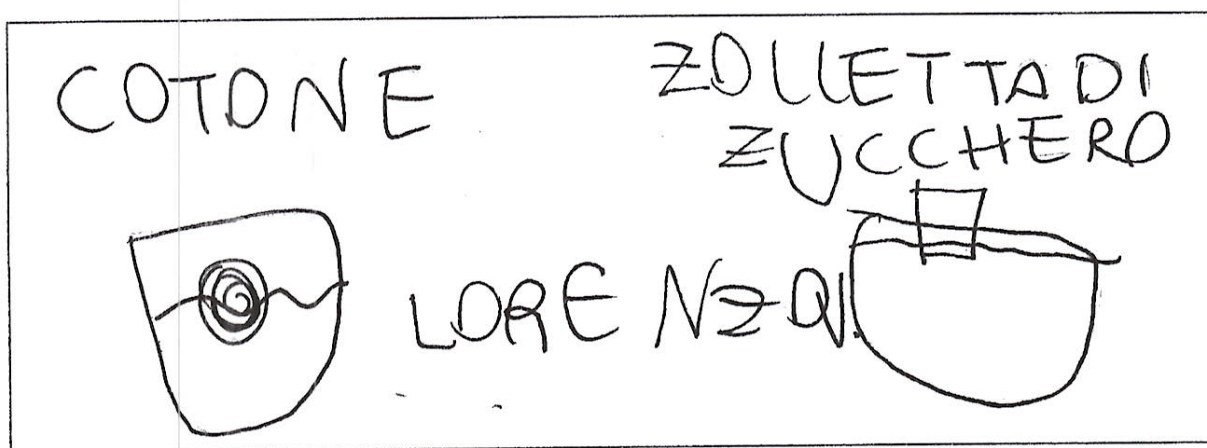 COTONE
ZOLLETTA DI
ZUCCHERO
LORENZO V.